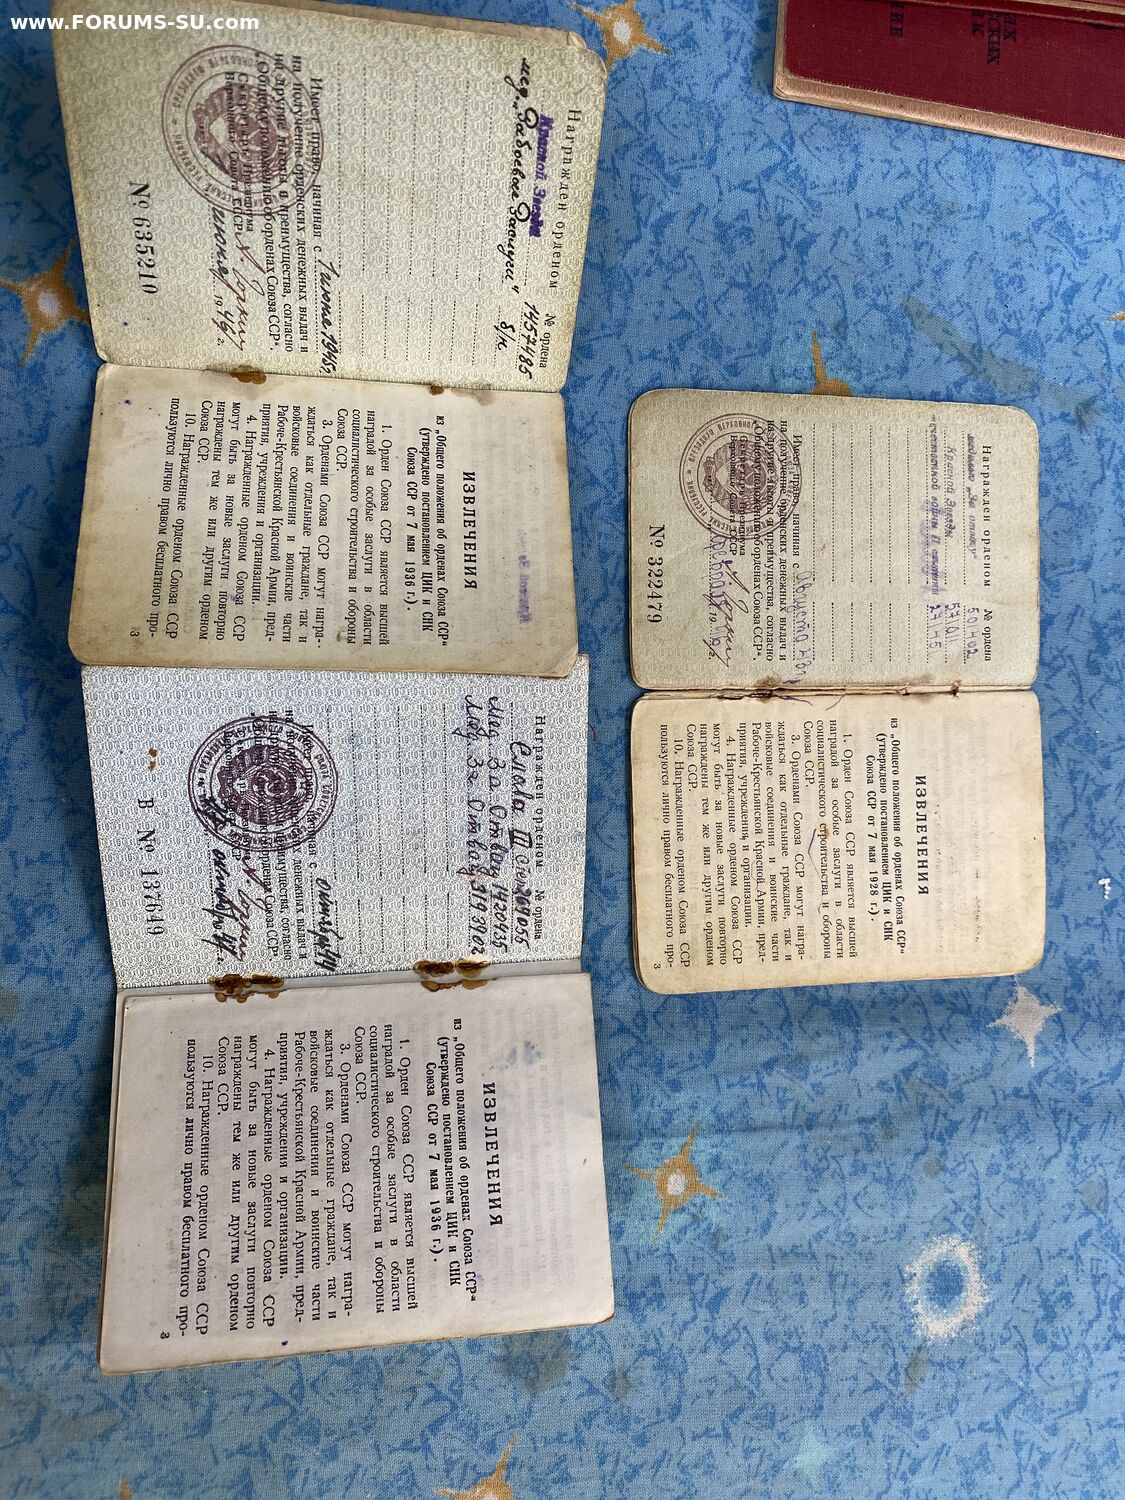 www.FORUMS-SU.com
Награжден орденом № ордена
Красной Звезды 1457485
мед. „За боевые Заслуги“ б/н
Имеет право, начиная с 1 июня 1945 г.
на получение орденских денежных выдач и
на другие льготы и преимущества, согласно
„Общему положению об орденах Союза ССР“.
Секретарь Президиума
Верховного Совета СССР
1946 г.
№ 635210
ИЗВЛЕЧЕНИЯ
из „Общего положения об орденах Союза ССР“
(утверждено постановлением ЦИК и СНК
Союза ССР от 7 мая 1936 г.).
1. Орден Союза ССР является высшей
наградой за особые заслуги в области
социалистического строительства и обороны
Союза ССР.
3. Орденами Союза ССР могут награ-
ждаться как отдельные граждане, так и
войсковые соединения и воинские части
Рабоче-Крестьянской Красной Армии, пред-
приятия, учреждения и организации.
4. Награжденные орденом Союза ССР
могут быть за новые заслуги повторно
награждены тем же или другим орденом
Союза ССР.
10. Награжденные орденом Союза ССР
пользуются лично правом бесплатного про-
3
Награжден орденом № ордена
медалью „За отвагу“ 501402
Красной Звезды
Отечественной войны II степени
Имеет право, начиная с Августа
на получение орденских денежных выдач и
на другие льготы и преимущества, согласно
„Общему положению об орденах Союза ССР“.
Секретарь Президиума
Верховного Совета СССР
№ 322479
ИЗВЛЕЧЕНИЯ
из „Общего положения об орденах Союза ССР“
(утверждено постановлением ЦИК и СНК
Союза ССР от 7 мая 1928 г.).
1. Орден Союза ССР является высшей
наградой за особые заслуги в области
социалистического строительства и обороны
Союза ССР.
3. Орденами Союза ССР могут награ-
ждаться как отдельные граждане, так и
войсковые соединения и воинские части
Рабоче-Крестьянской Красной Армии, пред-
приятия, учреждения и организации.
4. Награжденные орденом Союза ССР
могут быть за новые заслуги повторно
награждены тем же или другим орденом
Союза ССР.
10. Награжденные орденом Союза ССР
пользуются лично правом бесплатного про-
3
Награжден орденом № ордена
Слава III 269055
Мед. За Отвагу 1420435
Мед. За Отвагу 3193902
денежных выдач и
согласно
Союза ССР“.
В № 137649
ИЗВЛЕЧЕНИЯ
из „Общего положения об орденах Союза ССР“
(утверждено постановлением ЦИК и СНК
Союза ССР от 7 мая 1936 г.).
1. Орден Союза ССР является высшей
наградой за особые заслуги в области
социалистического строительства и обороны
Союза ССР.
3. Орденами Союза ССР могут награ-
ждаться как отдельные граждане, так и
войсковые соединения и воинские части
Рабоче-Крестьянской Красной Армии, пред-
приятия, учреждения и организации.
4. Награжденные орденом Союза ССР
могут быть за новые заслуги повторно
награждены тем же или другим орденом
Союза ССР.
10. Награжденные орденом Союза ССР
пользуются лично правом бесплатного про-
3